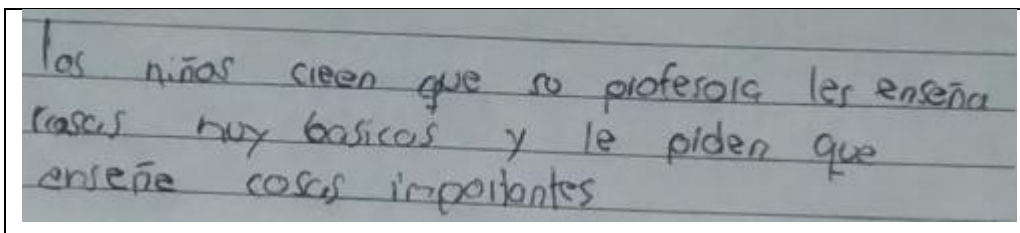 los niños creen que su profesora les enseña
cosas muy basicas y le piden que
enseñe cosas importantes